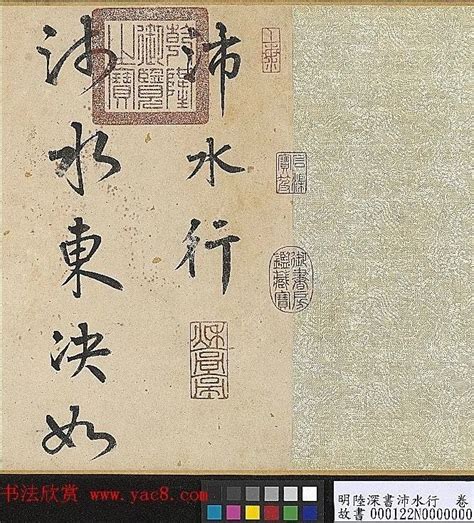 沛水行
河水東決如
乾隆
御覽
之寶
石渠
寶笈
御書房
鑑藏寶
书法欣赏 www.yac8.com
明陸深書沛水行 卷
故書 000122N0000000